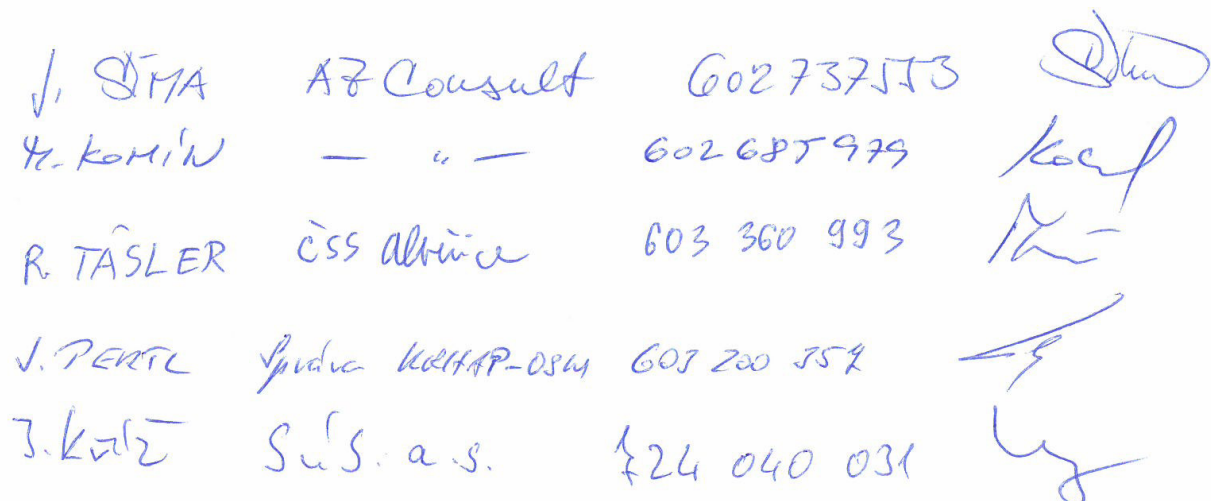 J. ŠÍMA AZ Consult 602737553
M. KOMÍN — " — 602 685 979
R. TÁSLER ČSS Albeřice 603 360 993
J. PERTL Správa KRNAP-OSM 603 200 357
J. Kříž SÚS. a.s. 724 040 031